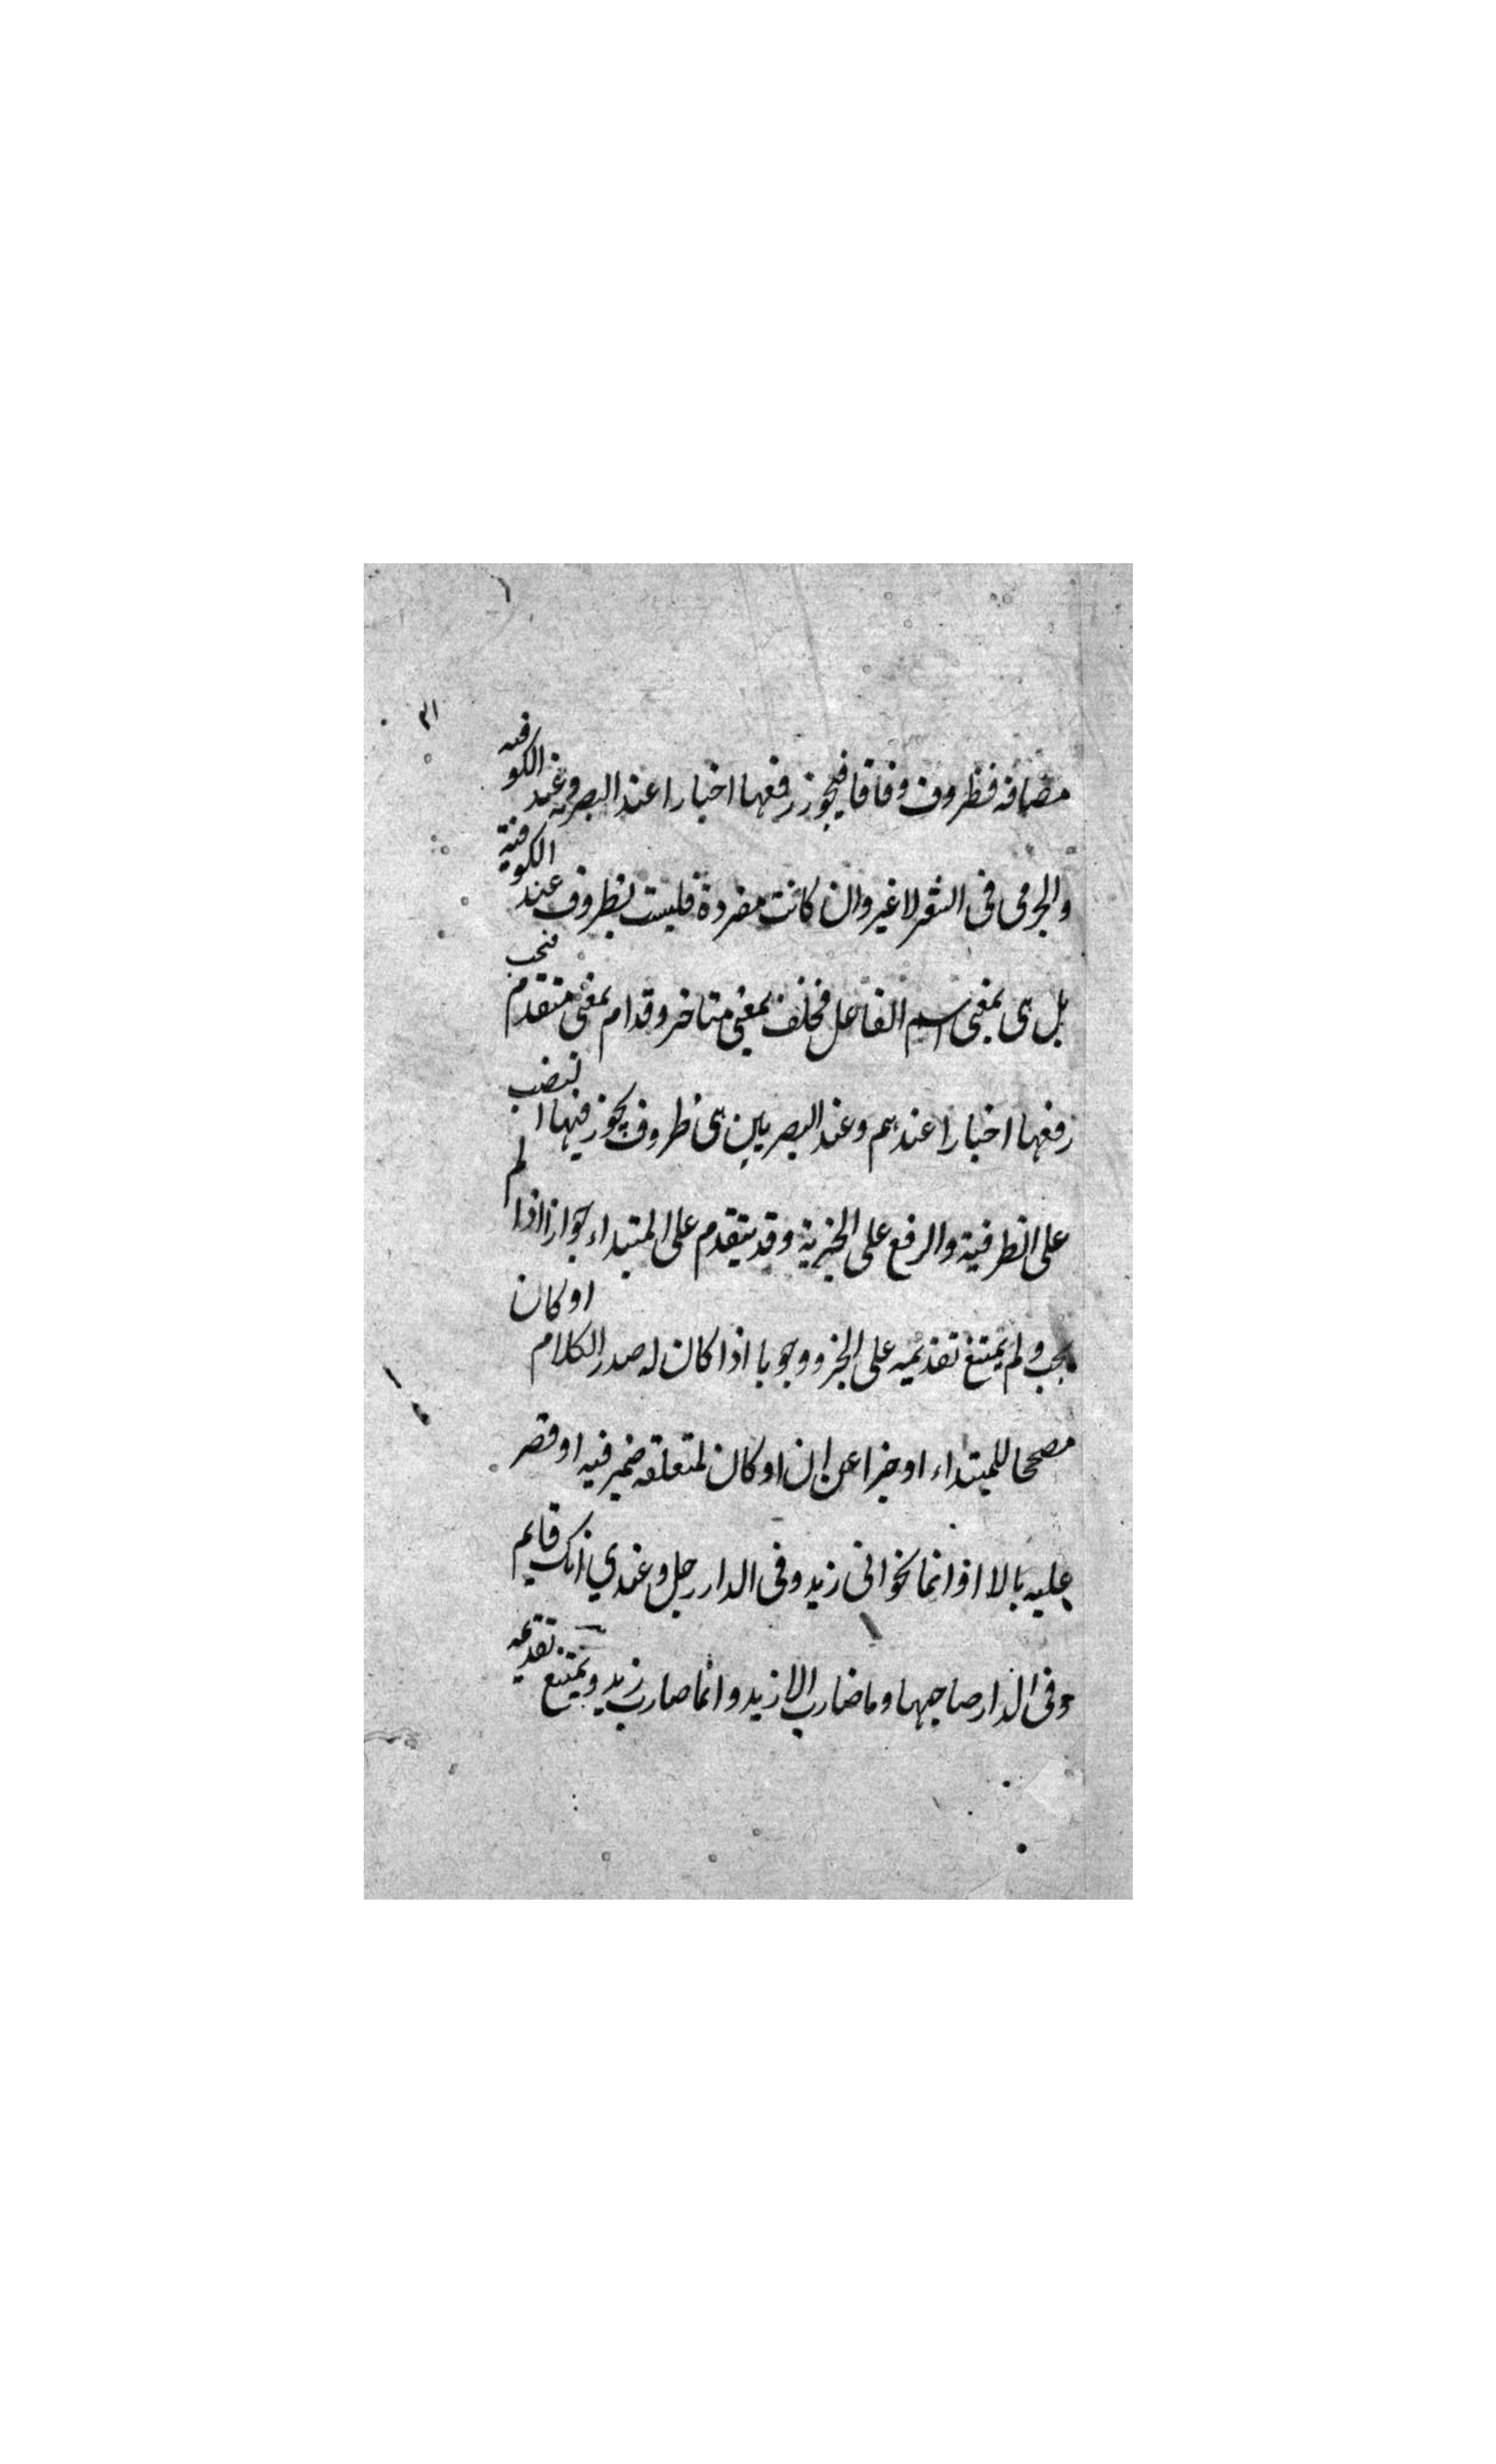 ٣١
مضافه فظروف وفاقا فيجوز رفعها اخبارا عند البصرية وعند الكوفيه
والجرمى فى الشعر لا غير وان كانت مفردة فليست بظروف عند الكوفية
بل هى بمعنى اسم الفاعل فخلف بمعنى متاخر وقدام بمعنى متقدم فيجب
رفعها اخبارا عندهم وعند البصريين هى ظروف يجوز فيها النصب
على الظرفية والرفع على الخبرية وقد يتقدم على المبتداء جوازا اذا لم
يجب ولم يمتنع تقديمه على الجزء ووجوبا اذا كان له صدر الكلام او كان
مصححا للمبتداء او خبرا عن ان او كان لمتعلقه ضمير فيه او قصر
عليه بالا او انما نحو انى زيد وفى الدار رجل وعندي انك قايم
وفى الدار صاحبها وما ضارب الا زيد وانما ضارب زيد ويمتنع تقديمه